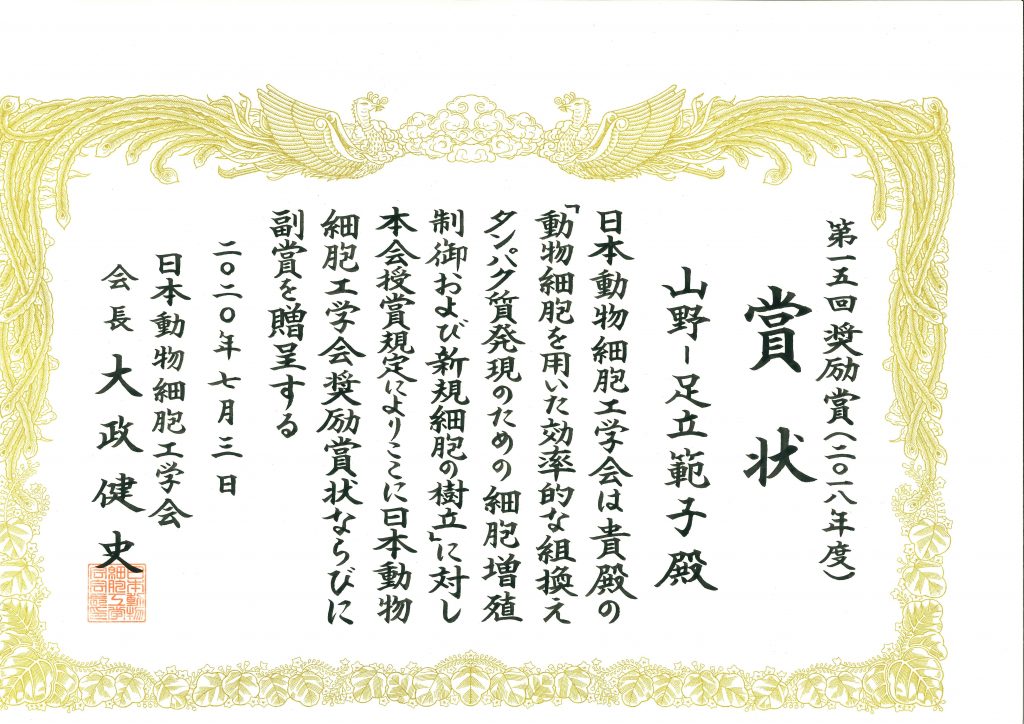 第一五回奨励賞(二〇一八年度)
賞状
山野-足立範子殿
日本動物細胞工学会は貴殿の
「動物細胞を用いた効率的な組換え
タンパク質発現のための細胞増殖
制御および新規細胞の樹立」に対し
本会授賞規定によりここに日本動物
細胞工学会奨励賞状ならびに
副賞を贈呈する
二〇二〇年七月三日
日本動物細胞工学会
会長 大政健史